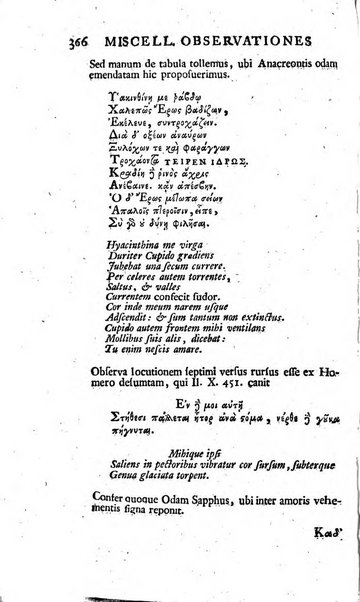 366 MISCELL. OBSERVATIONES
Sed manum de tabula tollemus, ubi Anacreontis odam
emendatam hic proposuerimus.
Ὑακινθίνῃ με ῥάβδῳ
Χαλεπῶς Ἔρως βαδίζων,
Ἐκέλευε, συντροχάζειν.
Διὰ δ' ὀξέων ἀναύρων
Ξυλόχων τε καὶ φαράγγων
Τροχάοντα ΤΕΙΡΕΝ ΙΔΡΩΣ.
Κραδίη ἢ ῥινὸς ἄχρις
Ἀνέβαινε. κἂν ἀπέσβην.
Ὁ δ' Ἔρως μέτωπα σείων
Ἁπαλοῖς πτεροῖσιν, εἶπε,
Σὺ γὸ ὐ δύνῃ φιλῆσαι.
Hyacinthina me virga
Duriter Cupido gradiens
Jubebat una secum currere.
Per celeres autem torrentes,
Saltus, & valles
Currentem confecit sudor.
Cor inde meum narem usque
Adscendit: & sum tantum non extinctus.
Cupido autem frontem mihi ventilans
Mollibus suis alis, dicebat:
Tu enim nescis amare.
Observa locutionem septimi versus rursus esse ex Ho-
mero desumtam, qui Il. X. 451. canit
Ἐν ἢ μοι αὐτῇ
Στήθεσι πάλλεται ἦτορ ἀνὰ στόμα, νέρθε ἢ γοῦνα
πήγνυται.
Mihique ipsi
Saliens in pectoribus vibratur cor sursum, subterque
Genua glaciata torpent.
Confer quoque Odam Sapphus, ubi inter amoris vehe-
mentis signa reponit.
Καδ'